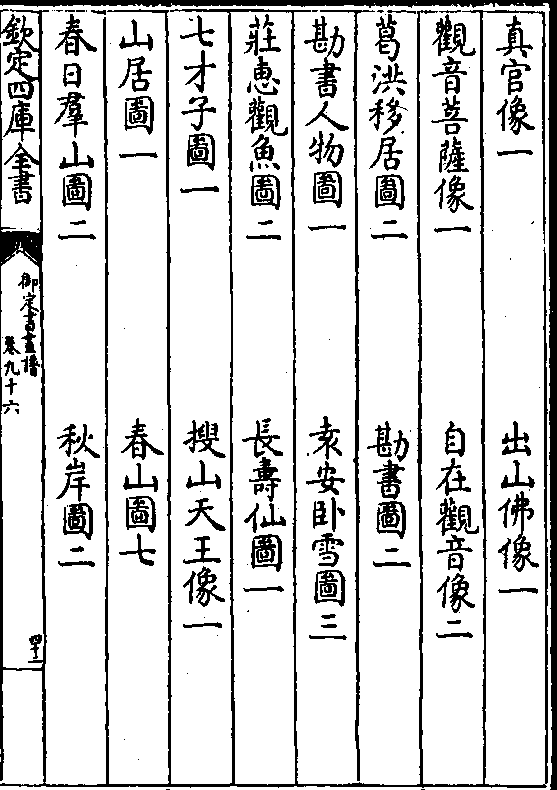 真官像一　出山佛像一
觀音菩薩像一　自在觀音像二
葛洪移居圖二　勘書圖二
勘書人物圖一　袁安卧雪圖三
莊惠觀魚圖二　長壽仙圖一
七才子圖一　搜山天王像一
山居圖一　春山圖七
春日羣山圖二　秋岸圖二
欽定四庫全書
御定書畫譜
卷九十六